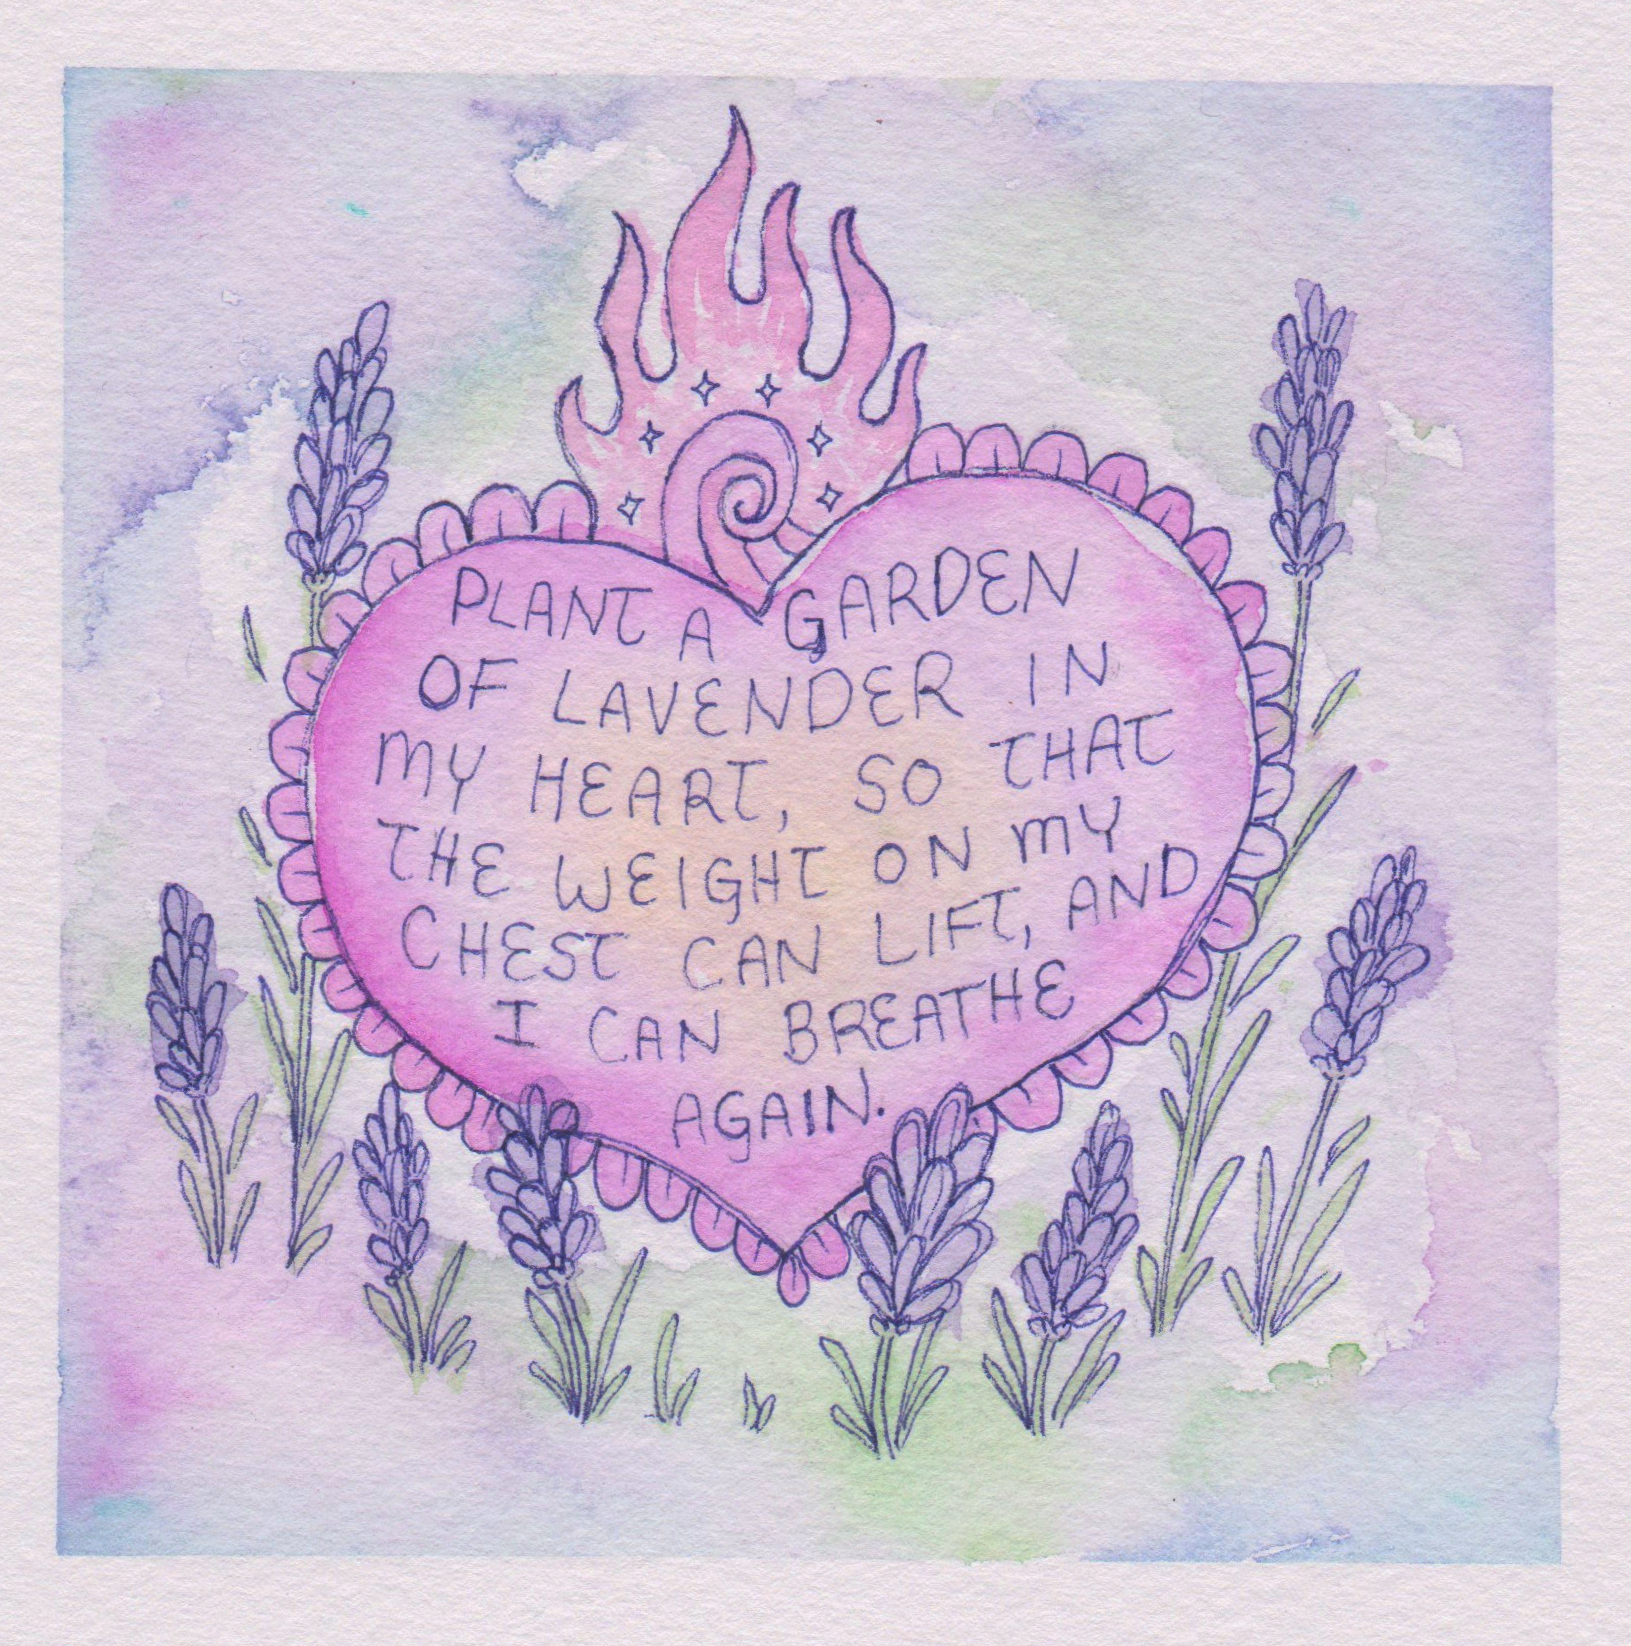 PLANT A GARDEN
OF LAVENDER IN
MY HEART, SO THAT
THE WEIGHT ON MY
CHEST CAN LIFT, AND
I CAN BREATHE
AGAIN.